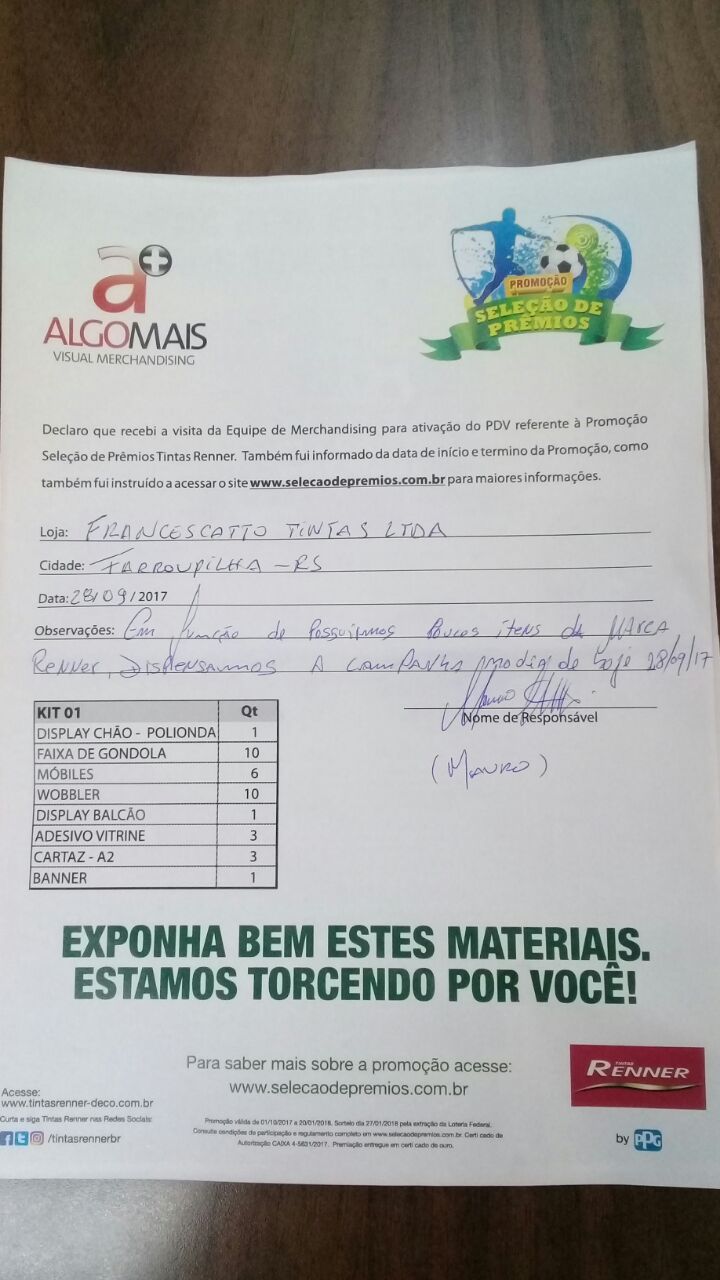 a+
ALGOMAIS
VISUAL MERCHANDISING
PROMOÇÃO
SELEÇÃO DE
PRÊMIOS
Declaro que recebi a visita da Equipe de Merchandising para ativação do PDV referente à Promoção
Seleção de Prêmios Tintas Renner. Também fui informado da data de início e termino da Promoção, como
também fui instruído a acessar o site www.selecaodepremios.com.br para maiores informações.
Loja: FRANCESCATTO TINTAS LTDA
Cidade: FARROUPILHA - RS
Data: 28/09/2017
Observações: Em função de Possuirmos Poucos itens da MARCA
Renner, DISPENSAMOS A CAMPANHA de hoje 28/09/17
Nome de Responsável
(MAURO)
KIT 01 Qt
DISPLAY CHÃO - POLIONDA 1
FAIXA DE GONDOLA 10
MÓBILES 6
WOBBLER 10
DISPLAY BALCÃO 1
ADESIVO VITRINE 3
CARTAZ - A2 3
BANNER 1
EXPONHA BEM ESTES MATERIAIS.
ESTAMOS TORCENDO POR VOCÊ!
Para saber mais sobre a promoção acesse:
www.selecaodepremios.com.br
TINTAS
RENNER
by PPG
Acesse:
www.tintasrenner-deco.com.br
Curta e siga Tintas Renner nas Redes Sociais:
/tintasrennerbr
Promoção válida de 01/10/2017 a 20/01/2018. Sorteio dia 27/01/2018 pela extração da Loteria Federal.
Consulte condições de participação e regulamento completo em www.selecaodepremios.com.br. Certificado de
Autorização CAIXA 4-5631/2017. Premiação entregue em certificado de ouro.